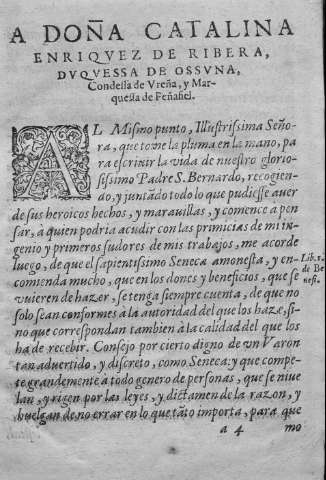 A DOÑA CATALINA
ENRIQVEZ DE RIBERA,
DVQVESSA DE OSSVNA,
Condessa de Vreña, y Mar-
quesa de Peñafiel.
AL Mismo punto, Illustrissima Seño-
ra, que tome la pluma en la mano, pa
ra escriuir la vida de nuestro glorio-
sissimo Padre S. Bernardo, recogien-
do, y juntãdo todo lo que pudiesse auer
de sus heroicos hechos, y marauillas, y comence a pen
sar, a quien podria acudir con las primicias de mi in-
genio y primeros sudores de mis trabajos, me acorde
luego, de que el sapientissimo Seneca amonesta, y en-
comienda mucho, que en los dones y beneficios, que se
vuieren de hazer, se tenga siempre cuenta, de que no
solo sean conformes à la autoridad del que los haze, si-
no que correspondan tambien à la calidad del que los
ha de recebir. Consejo por cierto digno de vn Varon
tan aduertido, y discreto, como Seneca: y que compe-
te grandemente à todo genero de personas, que se niue
lan, y rigen por las leyes, y dictamen de la razon, y
huelgan de no errar en lo que tãto importa, para que
a 4 mo
Lib. 1.
de Be
nefi.